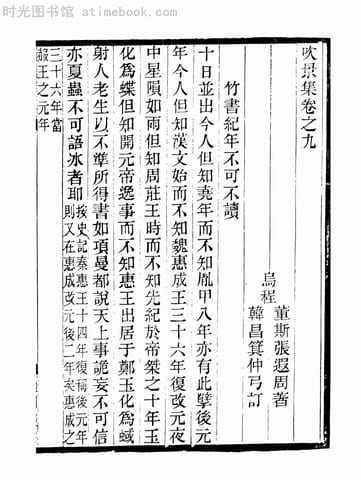 时光图书馆 atimebook.com
吹景集卷之九
烏程
董斯張遐周著
韓昌箕仲弓訂
竹書紀年不可不讀
十日並出今人但知堯年而不知胤甲八年亦有此孽後元
年今人但知漢文始而不知魏惠成王三十六年復改元夜
中星隕如雨但知周莊王時而不知先紀於帝桀之十年玉
化為蝶但知開元帝逸事而不知惠王出居于鄭玉化為蜮
射人老生以不準所得書如項曼都說天上事詭妄不可信
亦夏蟲不可語冰者耶
按史記秦惠王十四年復稱後元年
則又在惠成改元後二年矣惠成之
三十六年當
赧王之元年